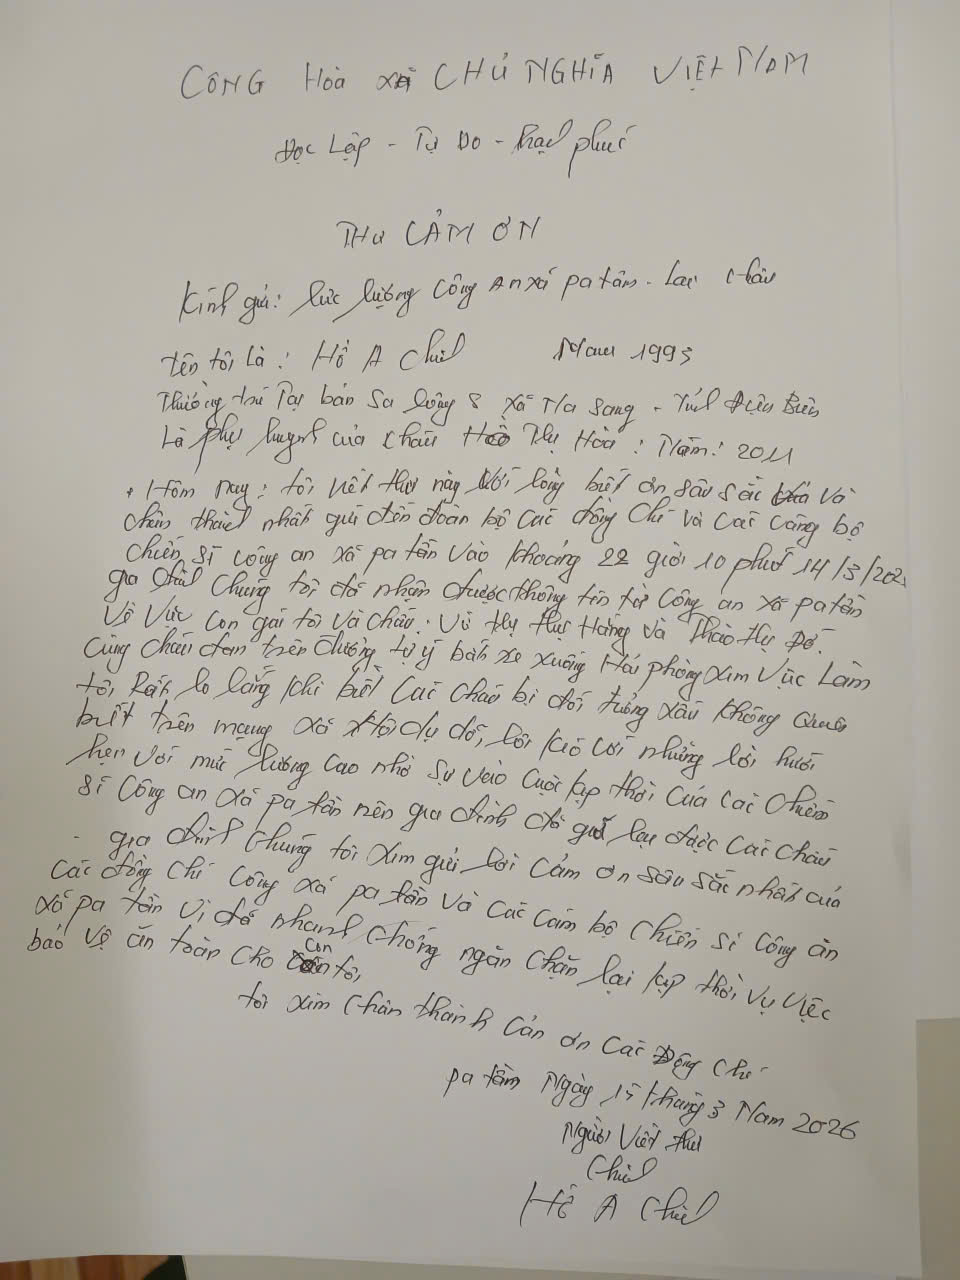 CÔNG HÒA XÃ CHỦ NGHĨA VIỆT NAM
Đọc Lập - Tự Do - Hạnh phúc
THƯ CẢM ƠN
Kính gửi: lực lượng Công An xã pa tần - Lai Châu
Tên tôi là: Hồ A Chỉnh Năm 1993
Thường trú Tại bản Sa lông 8 xã Na Sang - Tỉnh Điện Biên
Là phụ huynh của cháu Hồ Thị Hoà: Năm: 2011
+ Hôm nay: tôi viết thư này với lòng biết ơn sâu sắc và
chân thành nhất gửi đến toàn bộ các đồng Chí và các cáng bộ
chiến sĩ công an xã pa tần vào khoảng 22 giời 10 phút 14/3/202
gia đình Chúng tôi đã nhận được thông tin từ Công an xã pa tần
Về Vực Con gái tôi và cháu. Vũ Thị Thu Hàng và Thào Thị Đớ.
Cùng cháu đan trên đường tự ý bắt xe xuống Hải phòng xim Vực Làm
tôi, Rất lo lắng khi biết các cháu bị đối tượng xấu không quen
biết trên mạng xã Hội dụ dỗ, lôi kéo với những lời hưới
hẹn với mức lương cao nhờ Sự vào cuộc kịp thời của các chiếm
sĩ Công an xã pa tần nên gia đình đã giữ lại được các cháu
- gia đình Chúng tôi xim gửi lời Cảm ơn sâu sắc nhất của
các đồng chí công xã pa tần và các cám bộ Chiến sĩ Công an
xã pa tần vì đã nhanh chóng ngăn chặn lại kịp thời vụ việc
bảo vệ ăn toàn cho Con tôi,
tôi xim Chân thành Cản ơn Các Đồng chí
pa tần Ngày 15 tháng 3 Nam 2026
Người Viết thư
Chỉnh
Hồ A Chỉnh